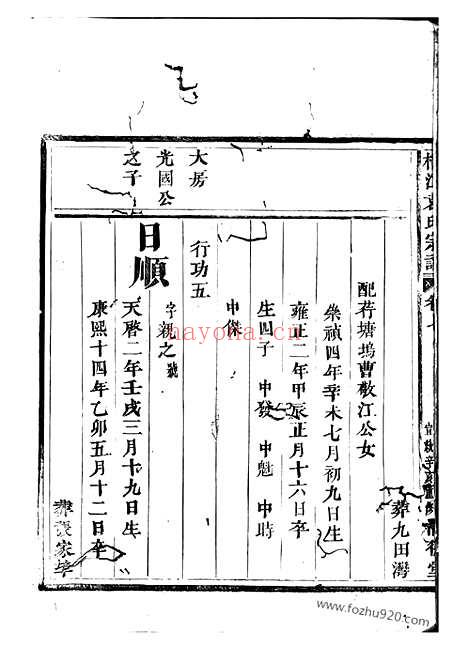 氏宗譜
葬九田灣
配荇塘塢曹敬江公女
崇禎四年辛未七月初九日生
雍正二年甲辰正月十六日卒
生四子 申發 申魁 申時
申傑
大房
光國公
之子
行功五
日順
字親之號
天啓二年壬戌三月十九日生
康熙十四年乙卯五月十二日卒
葬張家
nayona.cn
www.fozhu920.com